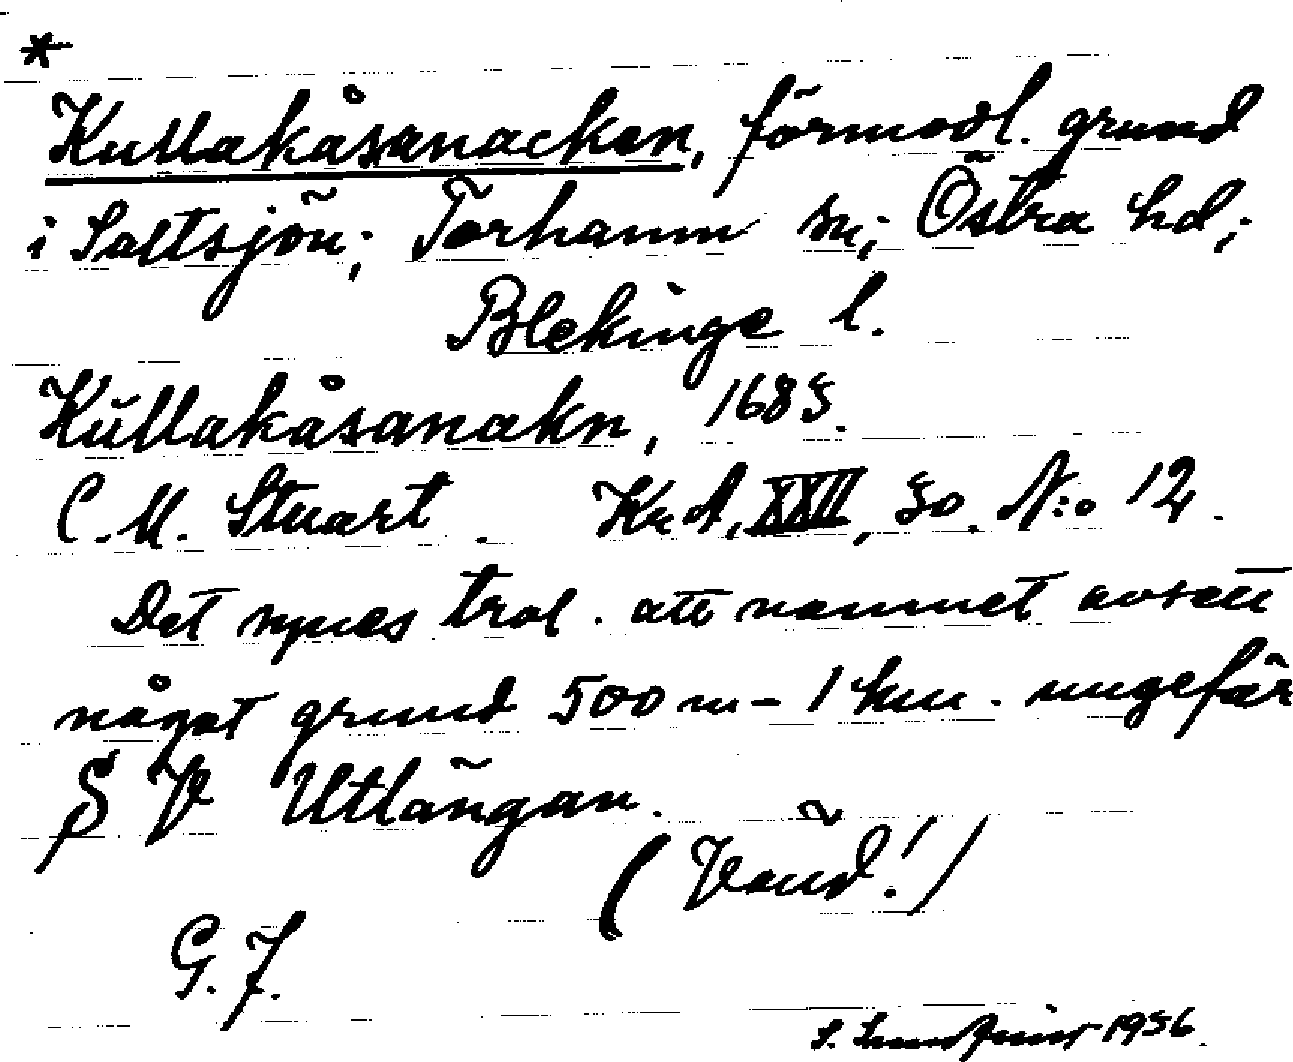 *
Kullakåsanacken, förmodl. grund
i Saltsjön; Torhamn sn; Östra hd;
Blekinge l.
Kŭllakåsanakn, 1685.
C. M. Stuart. Kr. A, XXII, 50. N:o 12.
Det synes trol. att namnet avsett
något grund 500 m - 1 km. ungefär
S V Utlängan.
(Vänd!)
G. F.
S. 1956.